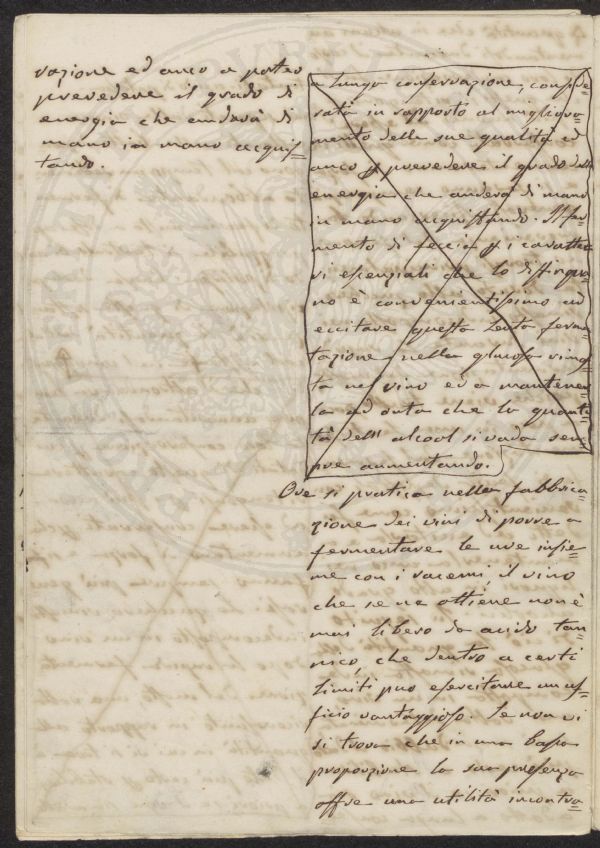 vazione ed anco a poter
prevedere il grado di
energia che anderà di
mano in mano acquis=
tando.
a lunga conservazione, conside=
rata in rapporto al migliora=
mento delle sue qualità ed
anco prevedere il grado della
energia che anderà di mano
in mano acquistando. Il fer=
mento di feccia i caratte=
ri essenziali che lo distinguo=
no è convenientissimo ad
eccitare questa lenta fermen=
tazione nella glucosa
nel vino ed a mantener
la ad onta che la quanti=
tà dell' alcool si vada sem=
pre aumentando.
Ove si pratica nella fabbrica=
zione dei vini di porre a
fermentare le uve insie=
me con i racemi, il vino
che se ne ottiene non è
mai libero da acido tan=
nico, che dentro a certi
limiti puo esercitare un uf=
ficio vantaggioso. Se non vi
si trova che in una bassa
proporzione la sua presenza
offre una utilità incontra=